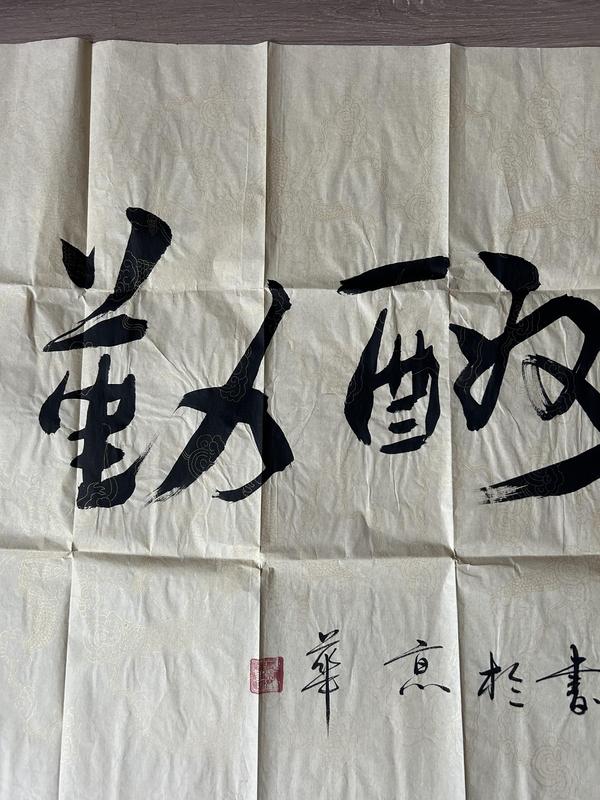 酬勤
書於京華